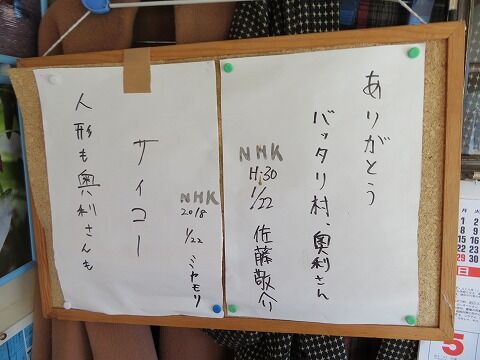 ありがとう
バッタリ村、奥利さん
NHK
H.30
1/22
佐藤敬介
人形も奥利さんも
サイコー
NHK
2018
1/22
ミヤモリ
月
火
1
2
8
9
15
16
22
23
29
30
日
5